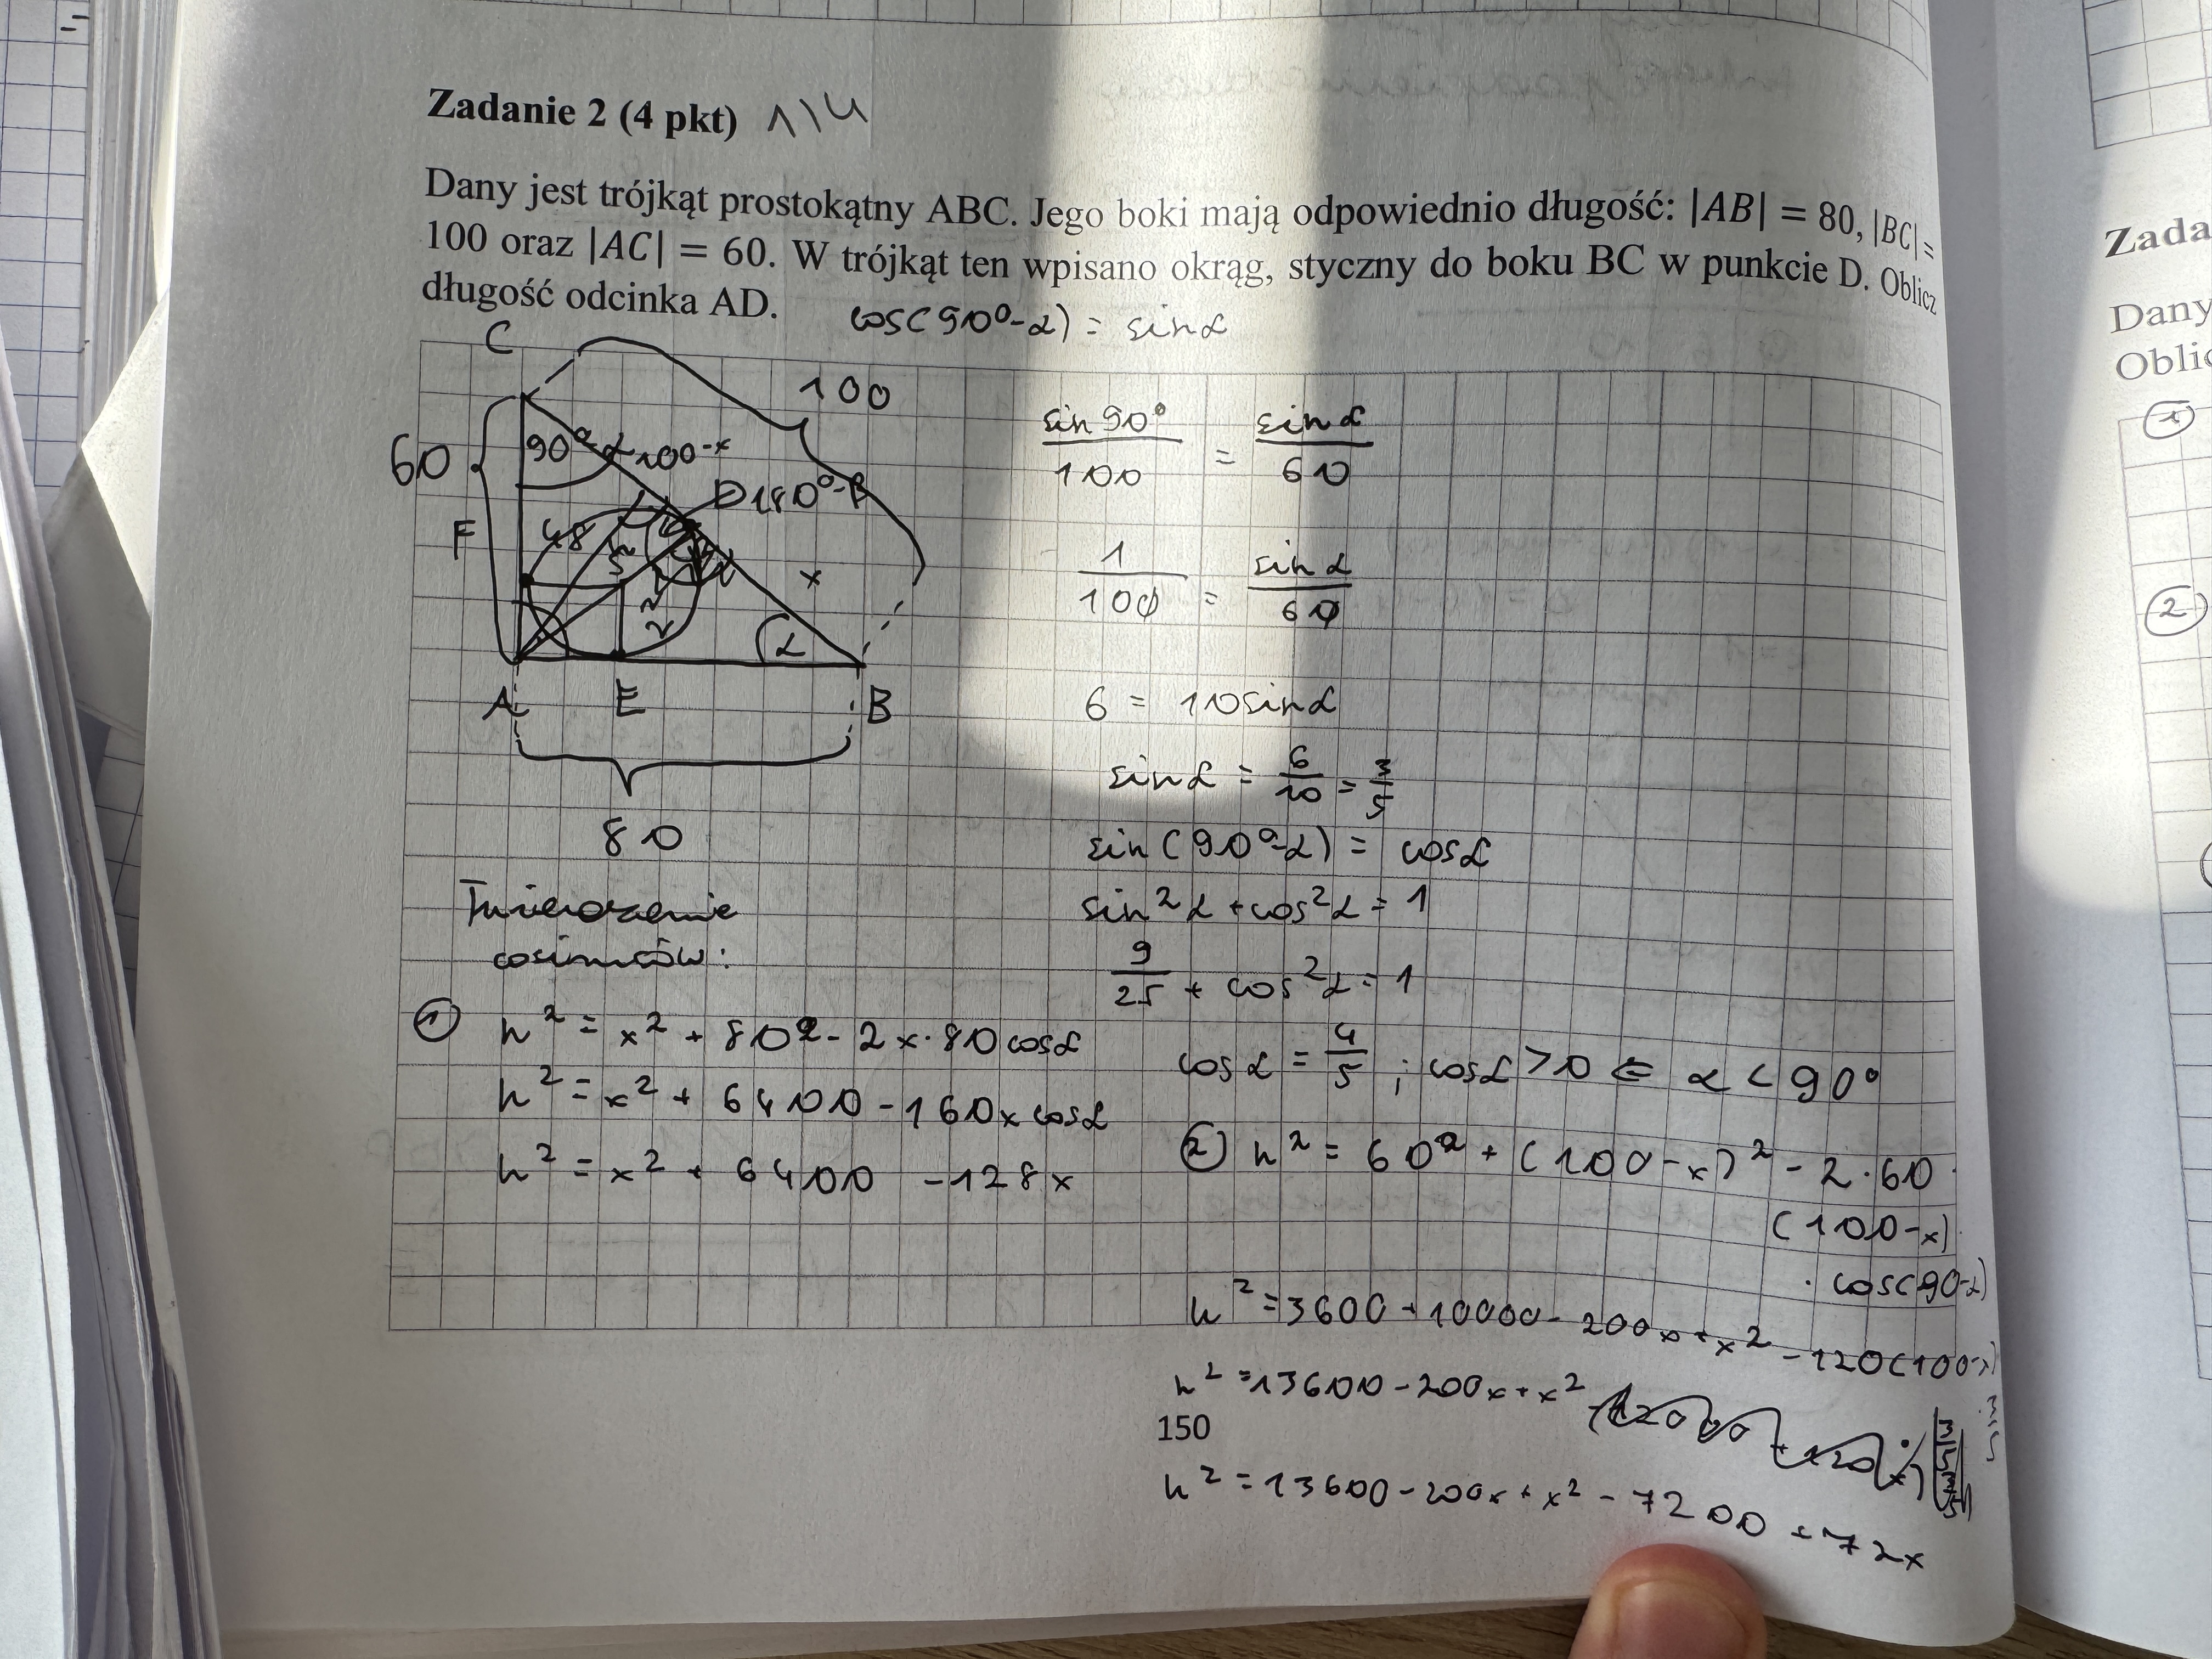 Zadanie 2 (4 pkt) 1/4
Dany jest trójkąt prostokątny ABC. Jego boki mają odpowiednio długość: |AB| = 80, |BC| =
100 oraz |AC| = 60. W trójkąt ten wpisano okrąg, styczny do boku BC w punkcie D. Oblicz
długość odcinka AD.
cos(90°-α) = sinα
C
100
60
90°-α
100-x
D
180°-β
F
48
S
r
r
x
α
A
E
B
80
sin90°/100 = sinα/60
1/100 = sinα/60
6 = 10sinα
sinα = 6/10 = 3/5
sin(90°-α) = cosα
sin²α + cos²α = 1
9/25 + cos²α = 1
cosα = 4/5 ; cosα > 0 ⇐ α < 90°
Twierdzenie
cosinusów:
① h² = x² + 80² - 2x·80cosα
h² = x² + 6400 - 160x cosα
h² = x² + 6400 - 128x
② h² = 60² + (100-x)² - 2·60·
(100-x)
· cos(90-α)
h² = 3600 + 10000 - 200x + x² - 120(100-x)
· 3/5
h² = 13600 - 200x + x²
150
h² = 13600 - 200x + x² - 7200 + 72x
Zada
Dany
Oblic
①
②